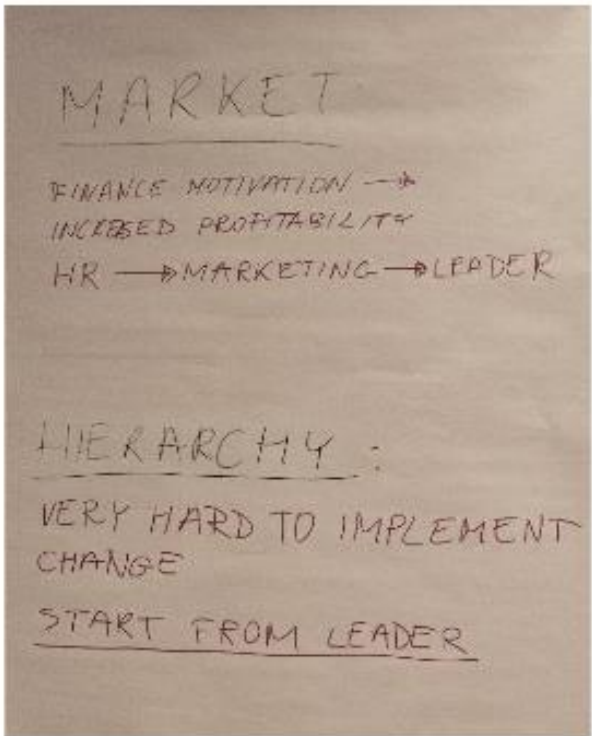 MARKET
FINANCE MOTIVATION →
INCREESED PROFITABILITY
HR → MARKETING → LEADER
HIERARCHY :
VERY HARD TO IMPLEMENT
CHANGE
START FROM LEADER